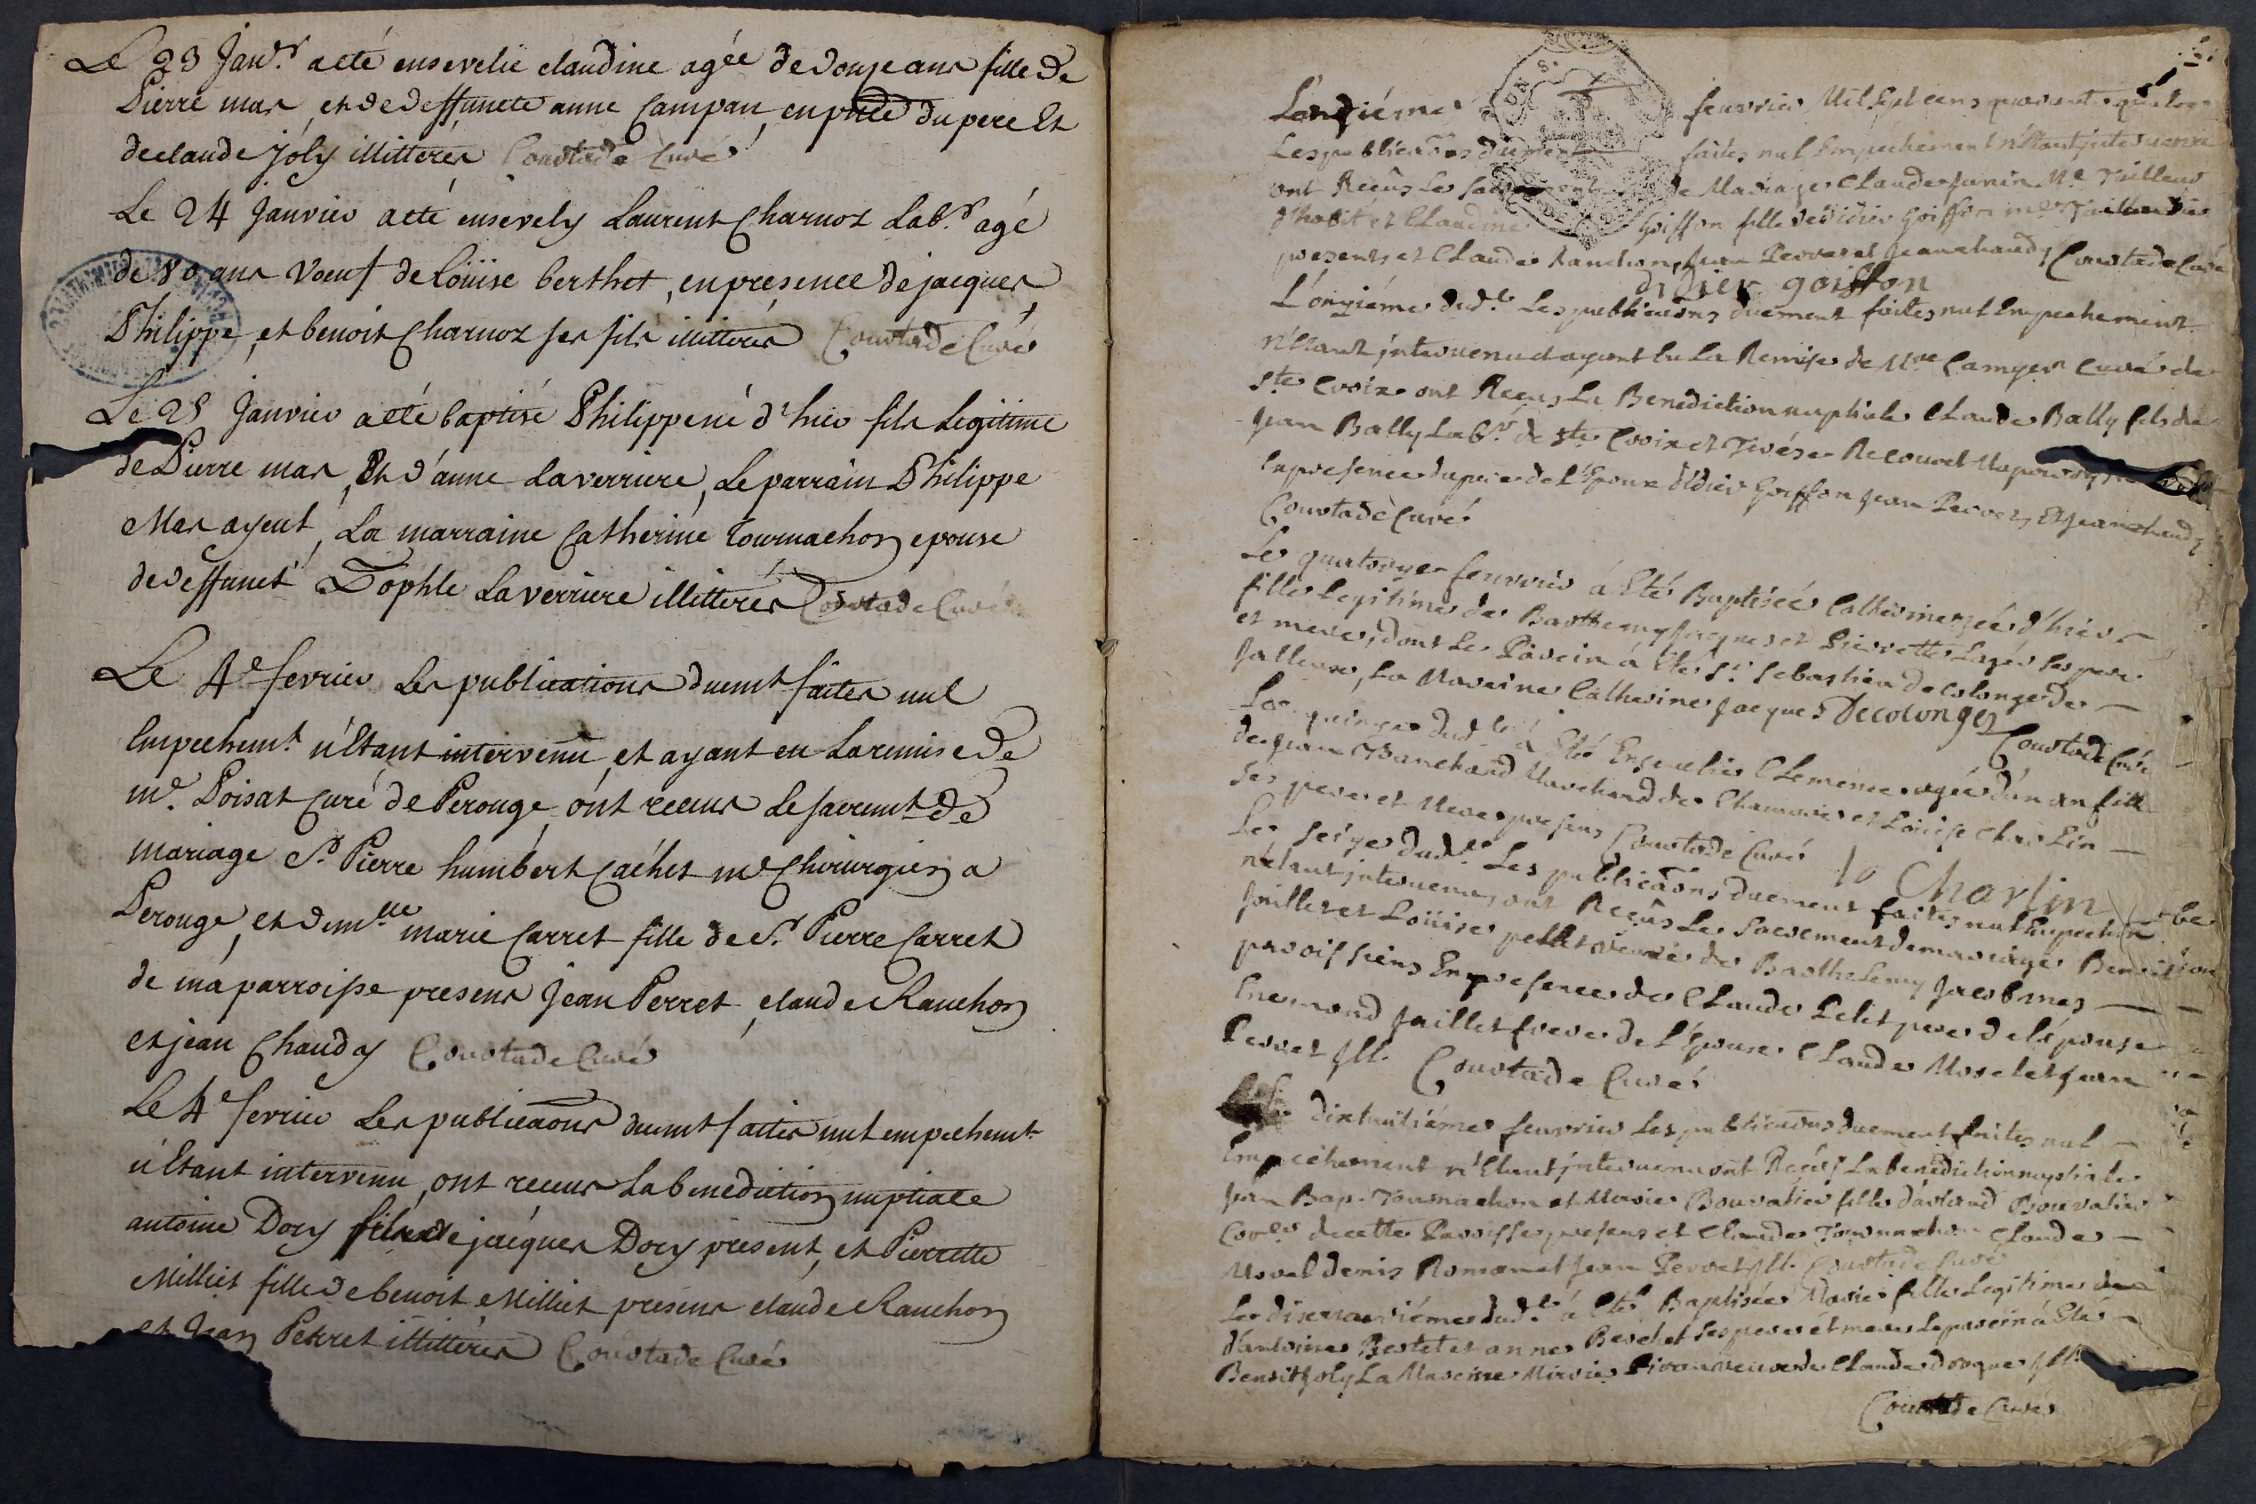 Le 23 Janv.r a eté ensevelie claudine agée de douze ans fille de
Pierre mas, et de deffuncte anne Campan, en pnce du pere Et
de claude Joly illitterés Coustade Curé
Le 24 Janvier a eté ensevely Laurent Charnoz Lab.r agé
de 80 ans Voeuf de Loüise berthet, en presence de jacques,
Philippe, et benoit Charnoz ses fils illitterés Coustade Curé
Le 25 Janvier a eté baptisé Philippe né d'hier fils Legitime
de Pierre mas, Et d'anne Laverriere, Le parrain Philippe
Mas ayeut, La marraine Catherine Tournachon epouse
de deffunct Tophle Laverriere illitterés Coustade Curé
Le 4e fevrier Les publications duemt faites nul
Empechemt n'Etant intervenu, et ayant eu La remise de
m.e Poisat Curé de Perouge, ont receus Le sacremt de
mariage S.r Pierre humbert Cachet me Chirurgien a
Perouge, et demlle marie Carret fille de S.r Pierre Carret
de ma parroisse presens Jean Perret, claude Ranchon
et jean Chanday Coustade Curé
Le 4e fevrier Les publicaons duemt faites nul empechemt
n'Etant intervenu, ont receus La benediction nuptiale
antoine Dory fils de jacques Dory present, et Pierrette
Milliet fille de benoit Milliet presens claude Ranchon
et Jean Perret illitterés Coustade Curé
L'onziéme feuvrier Mil Sept cens quarante
Les publicaõns duement faites nul Empechement n'Etant intervenu
ont Reçûs Le Sacrement de Mariage Claude Janin Me Tailleur
d'habit et Claudine Goiffon fille de didier Goiffon
presents et Claude Ranchon, Jean Perret et Jean chanday Coustade Curé
didier goiffon
L'onziéme dud.t Les publicaõns duement faites nul Empechement
n'Etant intervenu et ayant Eu La Remise de Mre Camyer Curé de
Ste Croix ont Reçus La Benediction nuptiale Claude Bally fils de
Jean Bally Lab.r de Ste Croix et
En presence du pere de L'Epoux didier Goiffon Jean Perret, Et Jean chanday
Coustade Curé
Le quatorze feuvrier á Eté Baptisée Catherine née d'hier
fille Legitime de Barthelemy Jacques et Pierrette Lagér Ses pere
et mere, dont Le Parein á Eté S.r Sebastien de colonge de
Jallieux, La Mareine Catherine Jacques Decolonges Coustade Curé
Le quinze dud.t á Eté Ensevelie Clemence agée d'un an fille
de Jean Blanchard Marchand de Chamoise et Loüise charlin
Ses pere et Mere presens Coustade Curé lo Charlin
Le Seize dud.t Les publicaõns duement faites nul Empechemt
n'Etant intervenu, ont Reçûs Le Sacrement de mariage Benoit
Jaillet et Loüise pelet veuve de Barthelemy Jacob mes
paroissiens En presence de Claude Pelet pere de l'épouse
Enemond Jaillet frere de L'Epoux Claude Morel et Jean
Perret Ill. Coustade Curé
Le dixhuitiéme feuvrier Les publicaõns duement faites nul
Empechement n'Etant intervenu ont Reçûs La benediction nuptiale
Jean Bap. Tournachon et Marie Bouvatier fille d'
de cette Paroisse presens et Claude Tournachon Claude
Morel denis Romanet Jean Perret Ill. Coustade Curé
Le diseneuviéme dud.t á Eté Baptisée Marie fille Legitime
d'antoine Bertet et anne Berlet Ses pere et mere Le parein á Eté
Benoit Joly La Mareine veuve de Claude Ill.
Coustade Curé